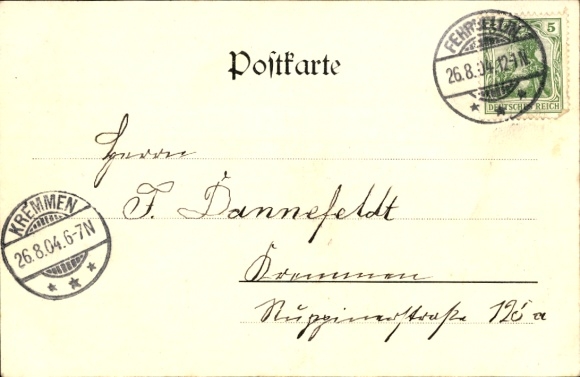 Postkarte
FEHRBELLIN
26.8.04.12-1N.
5
DEUTSCHES REICH
Herrn
F. Dannefeldt
Kremmen
Ruppinerstraße
KREMMEN
26.8.04.6-7N